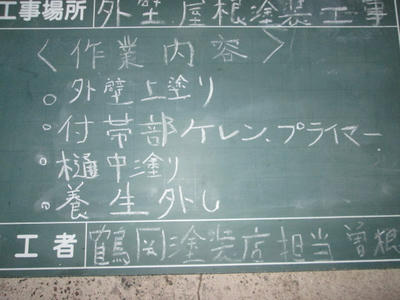 工事場所 外壁屋根塗装工事
<作業内容>
○外壁上塗り
・付帯部ケレン、プライマー
・樋中塗り
・養生外し
工者 鶴岡塗装店担当 曽根